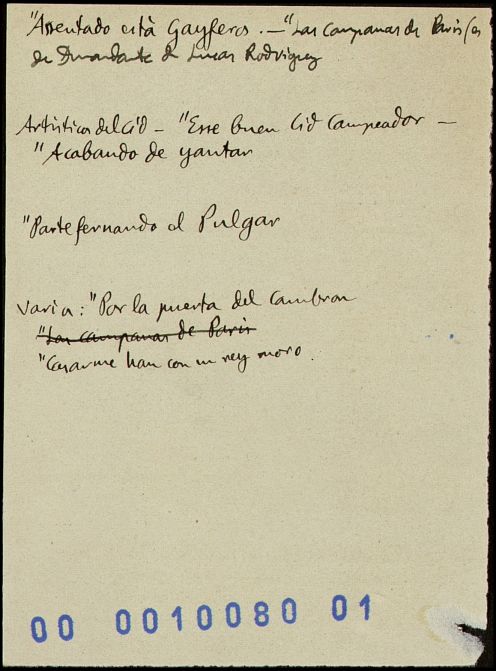 "Assentado està Gayferos. — "Las campanas de Paris (es
de Durandarte de Lucas Rodriguez
Artística del Cid — "Esse buen Cid Campeador —
"Acabando de yantar
"Parte fernando el Pulgar
Varia: "Por la puerta del Cambron
"Las campanas de Paris
"Casarme han con un rey moro.
00 0010080 01